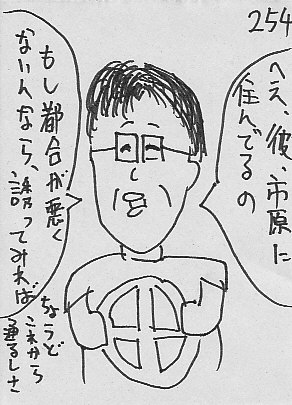 254
へえ、彼、市原に
住んでるの
もし都合が悪く
ないんなら、誘ってみれば
ちょうど
これから
通るしさ